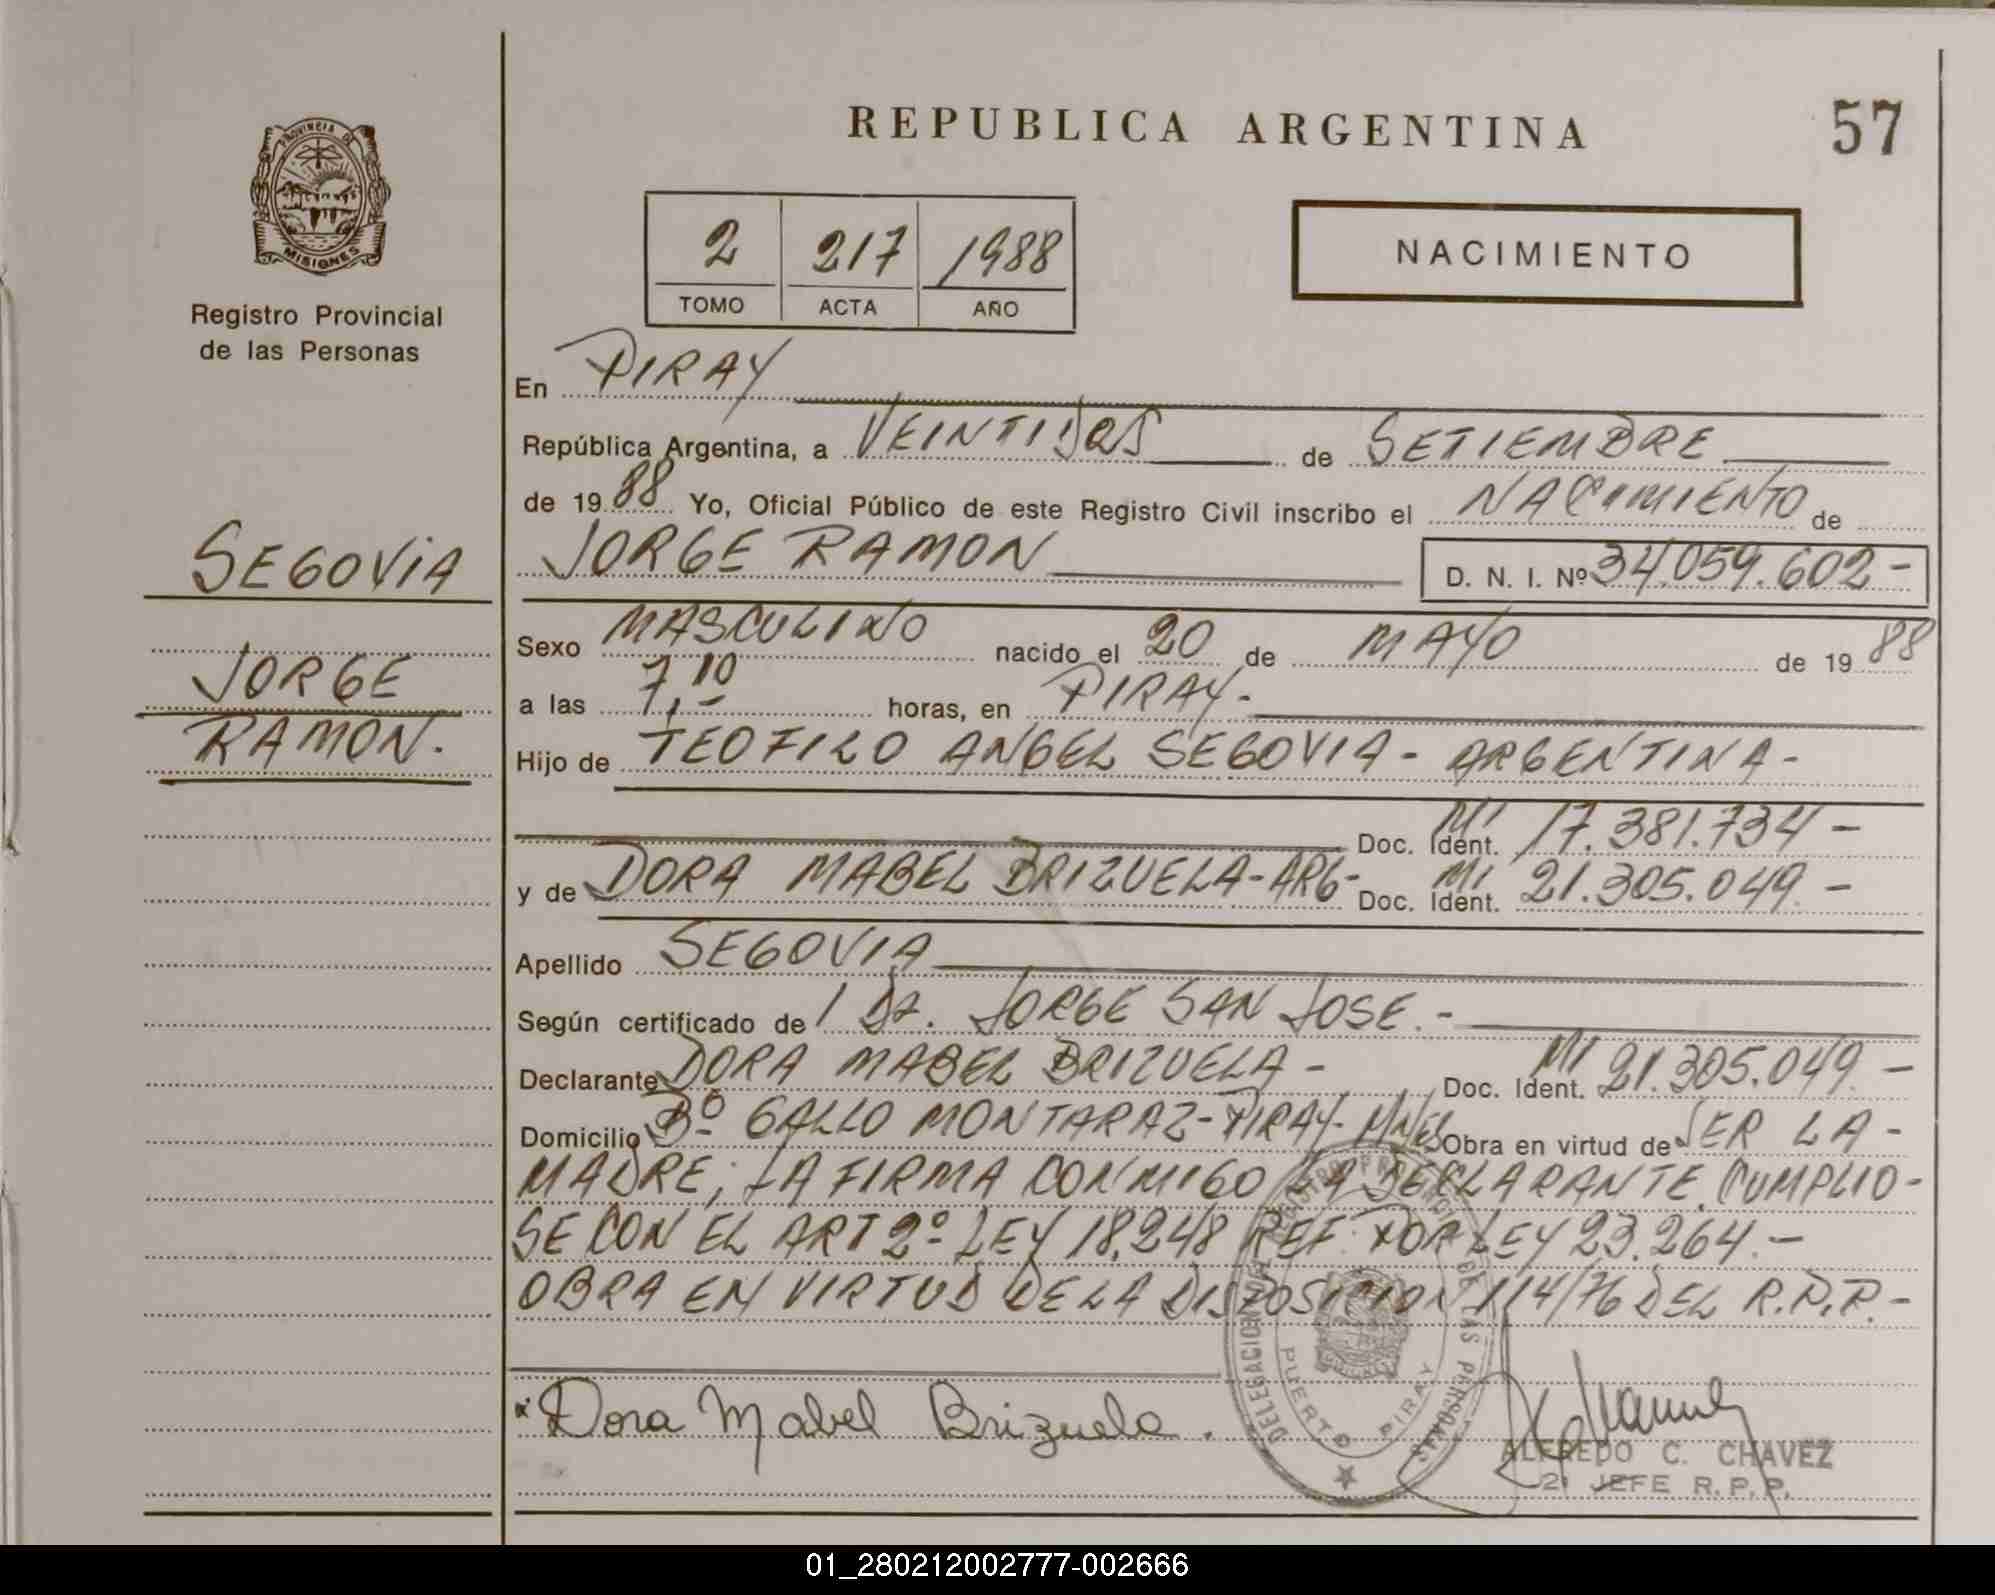 REPUBLICA ARGENTINA
57
PROVINCIA DE
MISIONES
Registro Provincial
de las Personas
2 217 1988
TOMO ACTA AÑO
NACIMIENTO
SEGOVIA
JORGE
RAMON.
En PIRAY
República Argentina, a VEINTIDOS de SETIEMBRE
de 1988 Yo, Oficial Público de este Registro Civil inscribo el NACIMIENTO de
JORGE RAMON D. N. I. Nº 34.059.602-
Sexo MASCULINO nacido el 20 de MAYO de 1988
a las 7,10 horas, en PIRAY-
Hijo de TEOFILO ANGEL SEGOVIA - ARGENTINA-
Doc. Ident. MI 17.381.734-
y de DORA MABEL BRIZUELA-ARG- Doc. Ident. MI 21.305.049-
Apellido SEGOVIA
Según certificado de 1 Dr. JORGE SAN JOSE.-
Declarante DORA MABEL BRIZUELA- Doc. Ident. MI 21.305.049.-
Domicilio Bº GALLO MONTARAZ-PIRAY-MNES Obra en virtud de SER LA-
MADRE; LA FIRMA CONMIGO LA DECLARANTE. CUMPLIO-
SE CON EL ART 2º LEY 18.248 REF. POR LEY 23.264.-
OBRA EN VIRTUD DE LA DISPOSICION 114/76 DEL R.P.P.-
Dora Mabel Brizuela.
DELEGACION DEL REGISTRO PROVINCIAL DE LAS PERSONAS
PUERTO PIRAY
ALFREDO C. CHAVEZ
2º JEFE R.P.P.
01_280212002777-002666